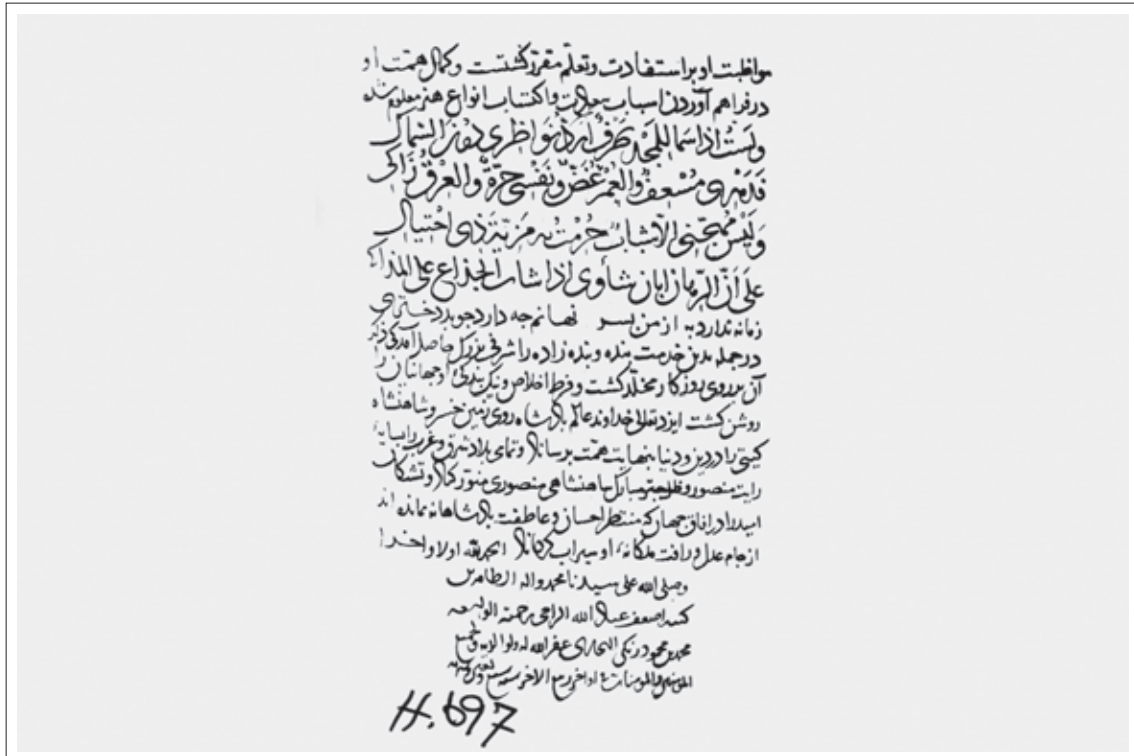 مواظبت او بر استفادت و تعلّم مقرّر کشتست و کمال همّت او
در فراهم آوردن اسباب سعادت و اکتساب انواع هنر معلوم شده
وَلَستُ اذا سَما للمجد طرفٌ اردّ نواظری دون السماک
مُسْعِفٌ والعُمْرُ غَضٌّ ونَفْسی حرّةٌ والعِرْقُ زاکی
وَلَیْسَ الّا شبابٌ حُرِمْتُ به مَزِیّةَ ذی احْتِناک
عَلی اَنّ الزّمان ابان شأوی اذا شأت الجذاع علی المذاکی
زمانه ندارد به از من پسر نهانم چه دارد چو بد دختری
در جمله بدین خدمت بنده و بنده زاده را شرفی بزرک حاصل آمد کی ذکر
آن بر روی روزکار مخلّد کشت و فرط اخلاص و نیک بندکی او جهانیان را
روشن کشت ایزد تعالی خداوند عالم پادشاه روی زمین خسرو شاهنشاه
کیتی را در دین و دنیا بنهایت همّت برساناد و تمامی بلاد شرق و غرب را بسایه
رایت منصور و شاهنشاهی منصوری منوّر کناد و تشنکان
امید را در آفاق جهان که منتظر احسان و عاطفت پادشاهانه مانده اند
از جام عدل و رأفت ملکانه او سیراب کرداناد الحمد لله اولا و آخرا
وصلی الله علی سیدنا محمد واله الطاهرین
کتبه اضعف عباد الله الراجی رحمته الواسعه
محمد بن محمود زنکی البخاری غفر الله له ولوالدیه ولجمیع
المؤمنین والمومنات فی اواخر ربیع الاخر سنه سبع وتسعین وستمایه
H. 697